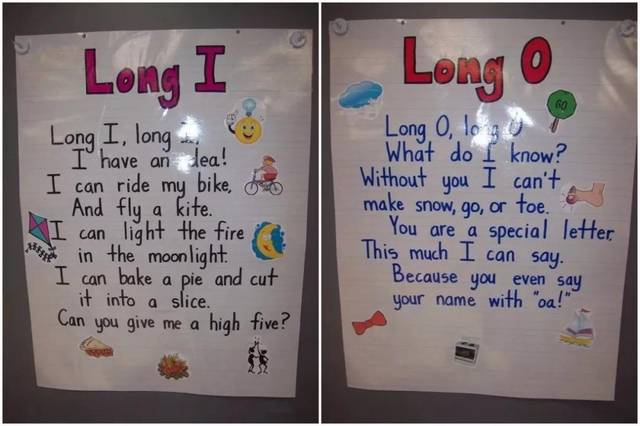 Long I
Long I, long I,
I have an idea!
I can ride my bike,
And fly a kite.
I can light the fire
in the moonlight.
I can bake a pie and cut
it into a slice.
Can you give me a high five?
Long O
GO
Long O, long O
What do I know?
Without you I can't
make snow, go, or toe.
You are a special letter.
This much I can say.
Because you even say
your name with "oa!"